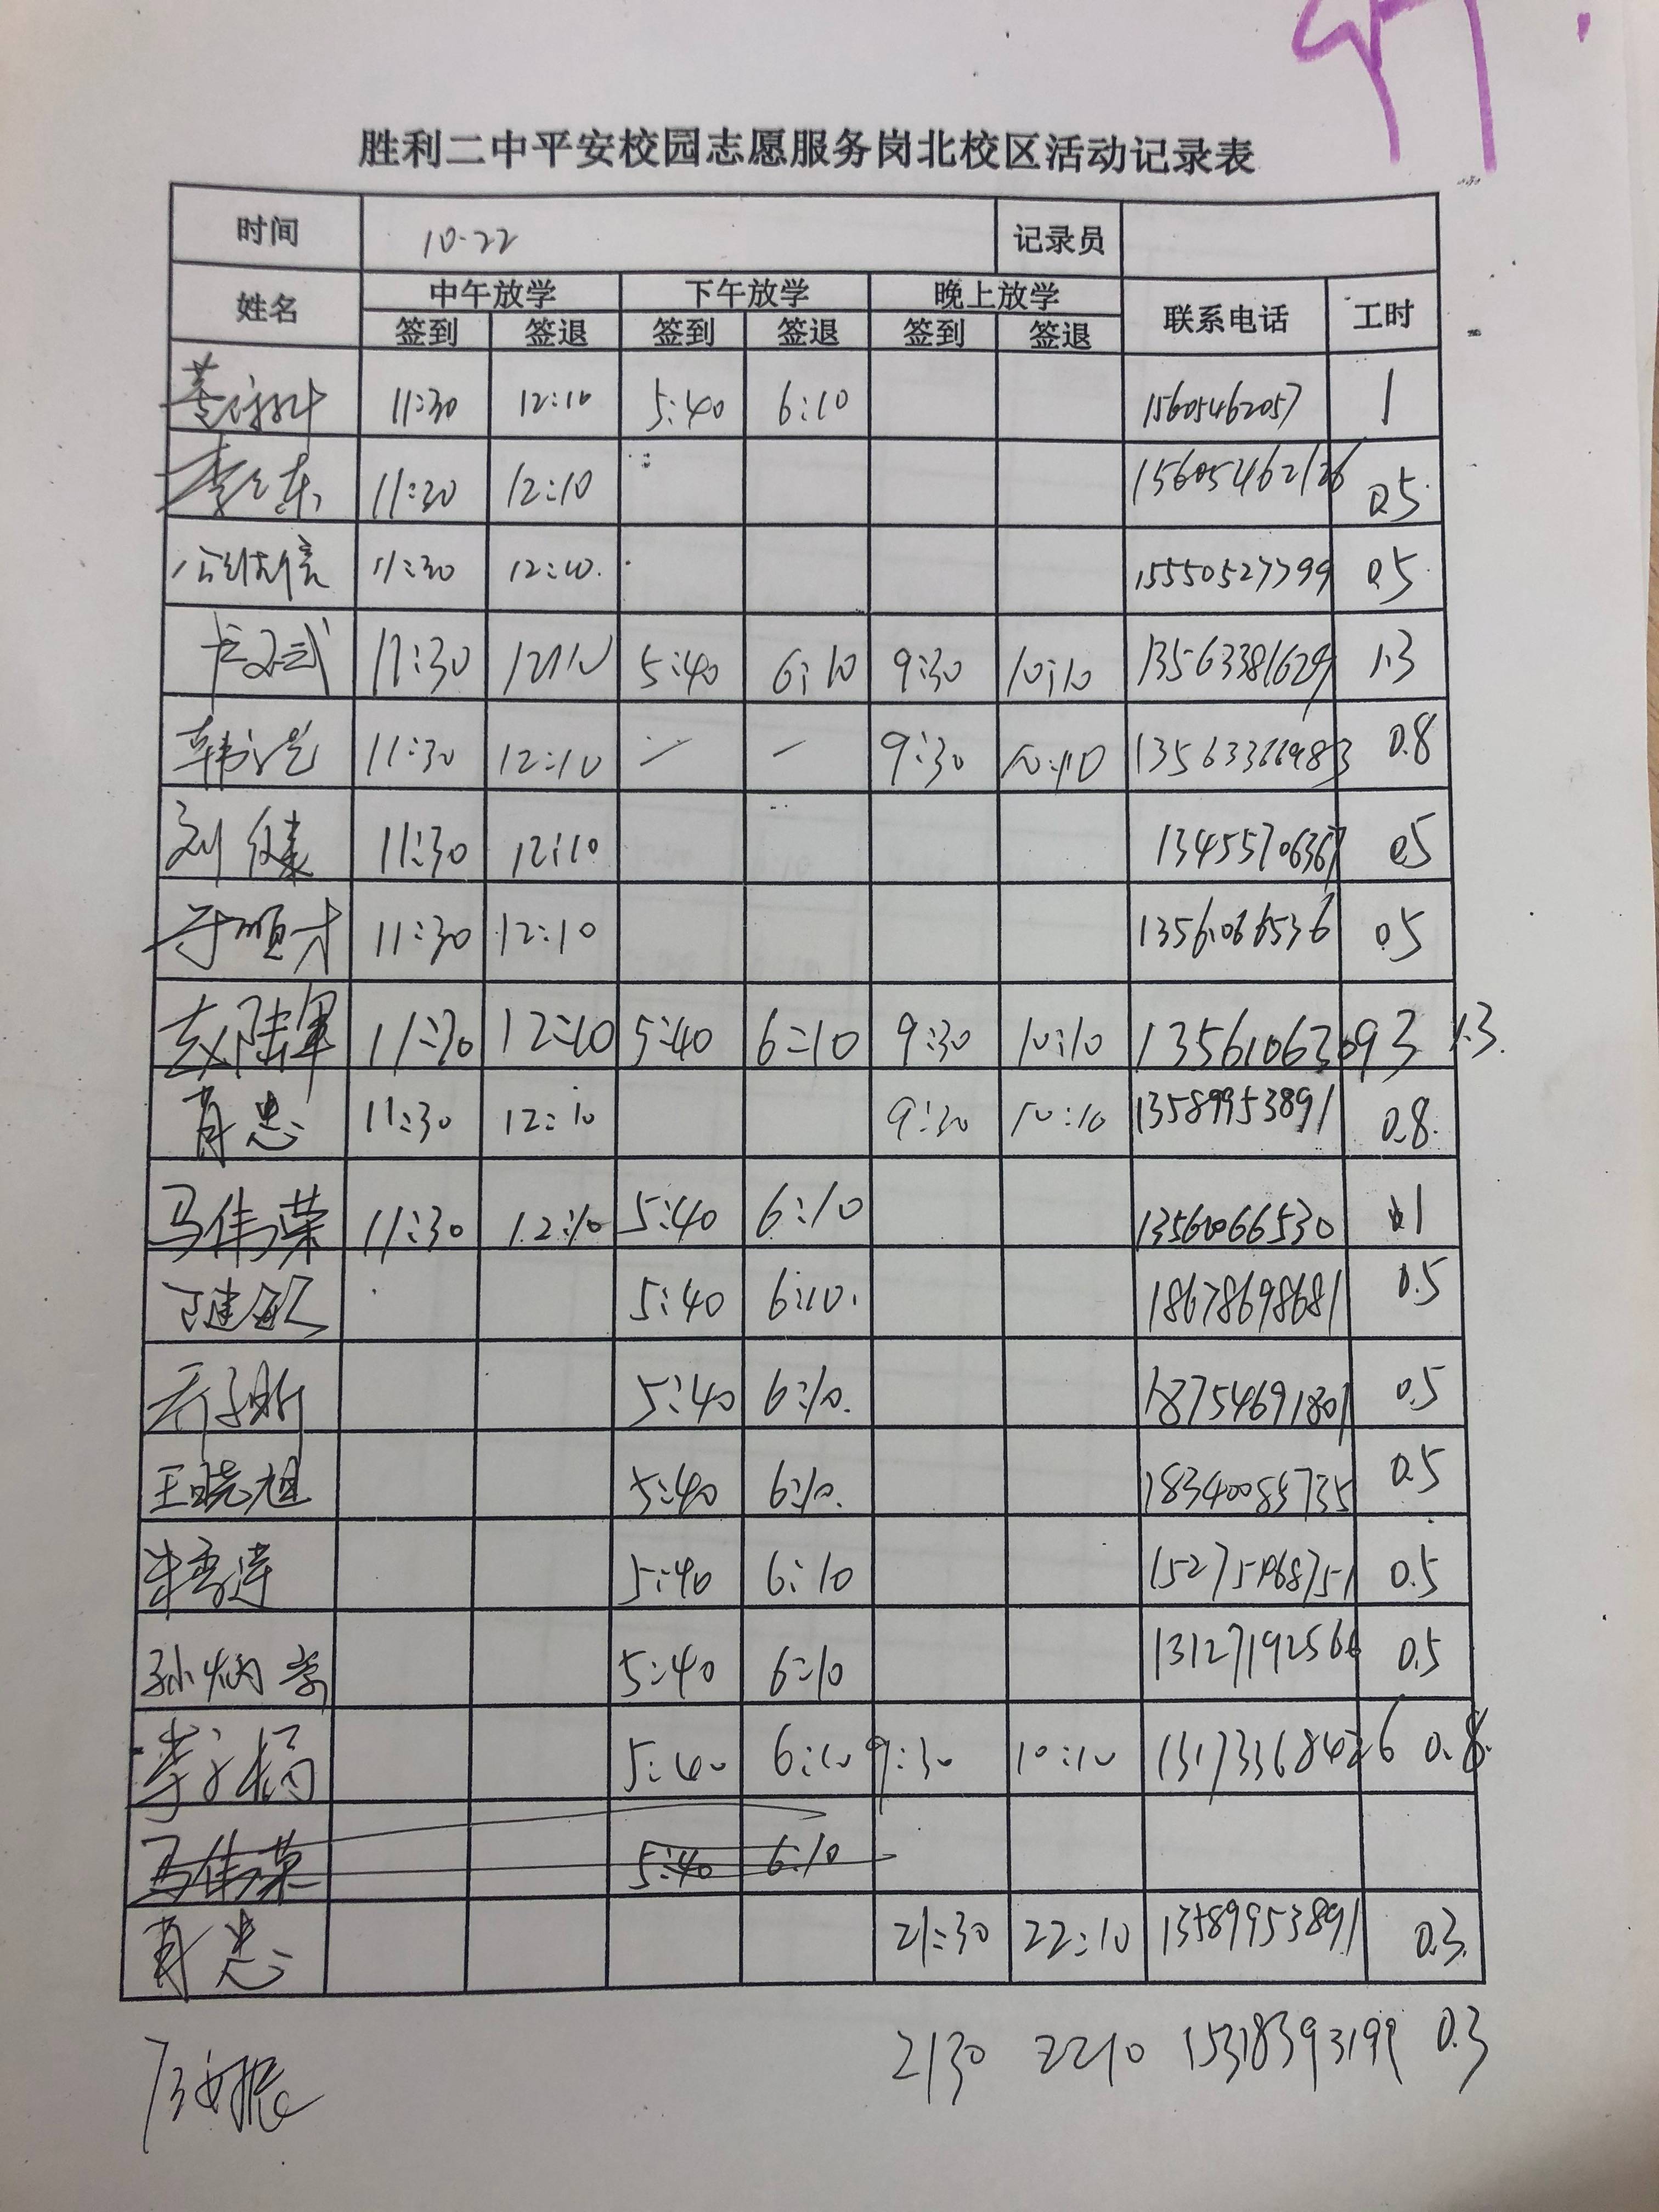 胜利二中平安校园志愿服务岗北校区活动记录表
时间 10.22 记录员
姓名 中午放学 下午放学 晚上放学 联系电话 工时
签到 签退 签到 签退 签到 签退
11:30 12:10 5:40 6:10 15605462057 1
11:30 12:10 15605462126 0.5
11:30 12:10. 15550527799 0.5
11:30 12:10 5:40 6:10 9:30 10:10 13563381629 1.3
11:30 12:10 — — 9:30 10:10 0.8
刘健 11:30 12:10 13455706367 0.5
于顺才 11:30 12:10 13561066536 0.5
赵陆军 11:30 12:10 5:40 6:10 9:30 10:10 13561063093 1.3
肖忠 11:30 12:10 9:30 10:10 13589953891 0.8
马伟荣 11:30 12:10 5:40 6:10 13561066530 1
丁建敏 5:40 6:10. 18678698681 0.5
5:40 6:10. 18754691801 0.5
王晓旭 5:40 6:10. 18340085735 0.5
朱秀莲 5:40 6:10 0.5
孙炳 5:40 6:10 13127192566 0.5
李 5:40 6:10 9:30 10:10 0.8
马伟荣 5:40 6:10
肖忠 21:30 22:10 13589953891 0.3
2130 2210 15318393199 0.3